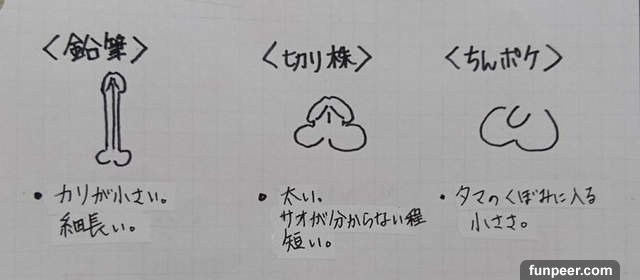 〈鉛筆〉
〈切り株〉
〈ちんポケ〉
・カリが小さい。
細長い。
・太い。
サオが分からない程
短い。
・タマのくぼみに入る
小ささ。
funpeer.com